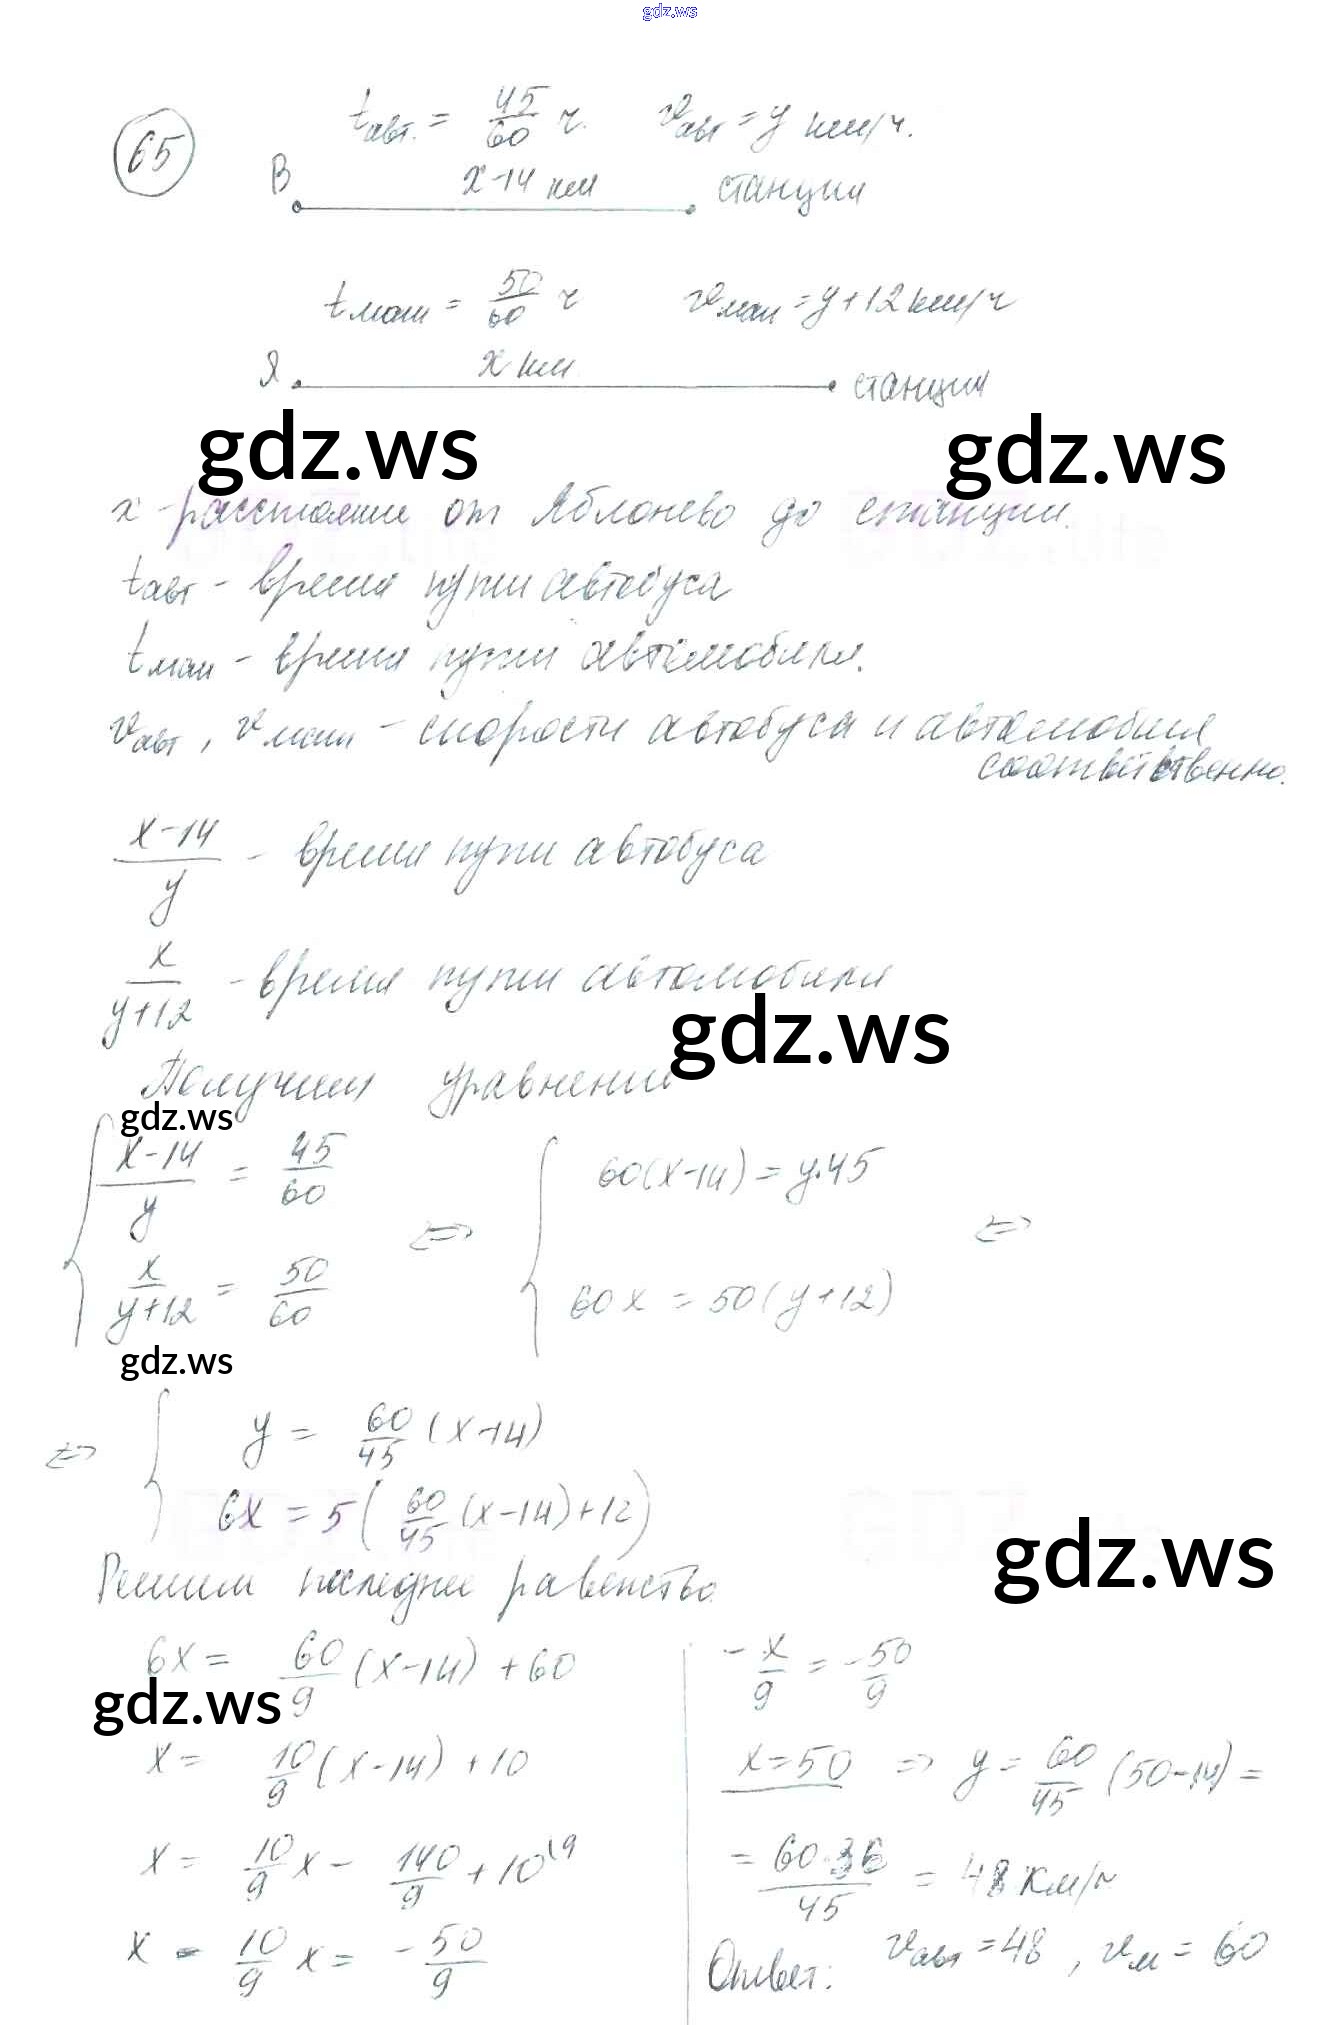 gdz.ws
65
tавт. = 45/60 ч. vавт = y км/ч.
В x-14 км станция
tмаш = 50/60 ч vмаш = y+12 км/ч
Я x км станция
gdz.ws gdz.ws
x - расстояние от Яблонево до станции.
tавт - время пути автобуса
tмаш - время пути автомобиля.
vавт, vмаш - скорости автобуса и автомобиля
соответственно.
x-14/y - время пути автобуса
x/y+12 - время пути автомобиля
gdz.ws
Получим уравнения
gdz.ws
{ x-14/y = 45/60 ⇔ { 60(x-14) = y·45 ⇔
x/y+12 = 50/60 60x = 50(y+12)
gdz.ws
⇔ { y = 60/45 (x-14)
6x = 5(60/45 (x-14)+12)
gdz.ws
Решим последнее равенство
6x = 60/9 (x-14) + 60
gdz.ws
x = 10/9 (x-14) + 10
x = 10/9 x - 140/9 + 10^(9
x - 10/9 x = -50/9
-x/9 = -50/9
x=50 ⇒ y = 60/45 (50-14) =
= 60·36/45 = 48 км/ч
Ответ: vавт = 48, vм = 60